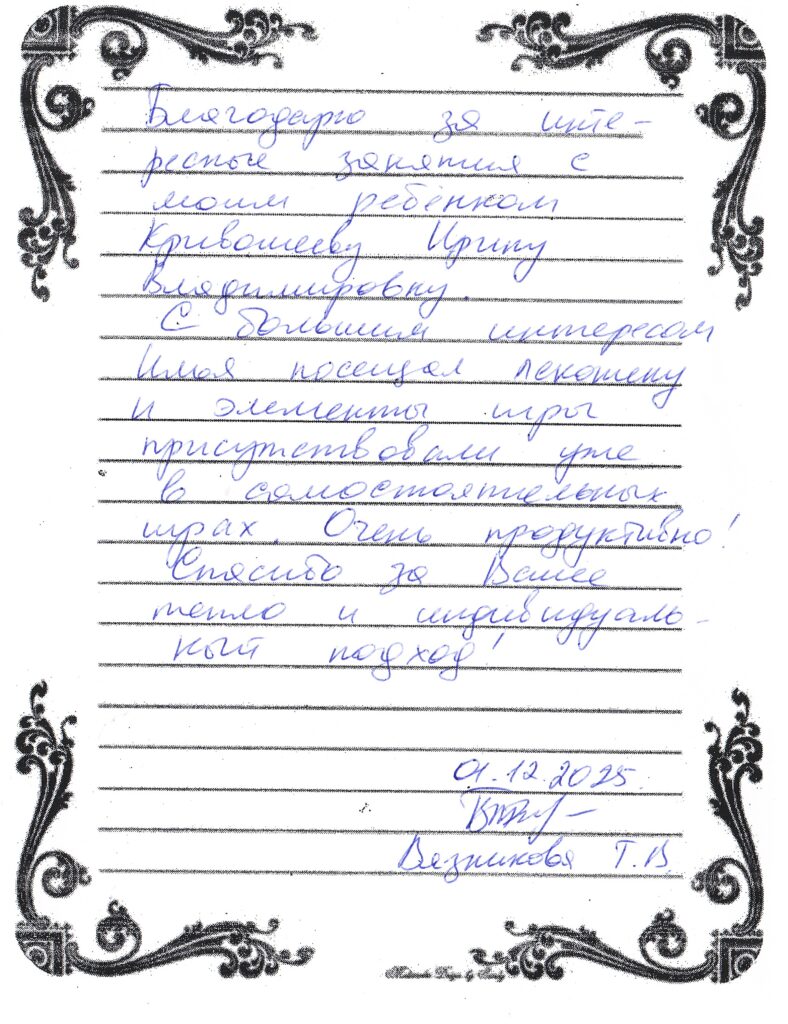 Благодарю за инте-
ресные занятия с
моим ребёнком
Кривошееву Ирину
Владимировну.
С большим интересом
Илья посещал лекотеку
и элементы игры
присутствовали уже
в самостоятельных
играх. Очень продуктивно!
Спасибо за Ваше
тепло и индивидуаль-
ный подход!
01.12.2025.
Вязникова Т.В.